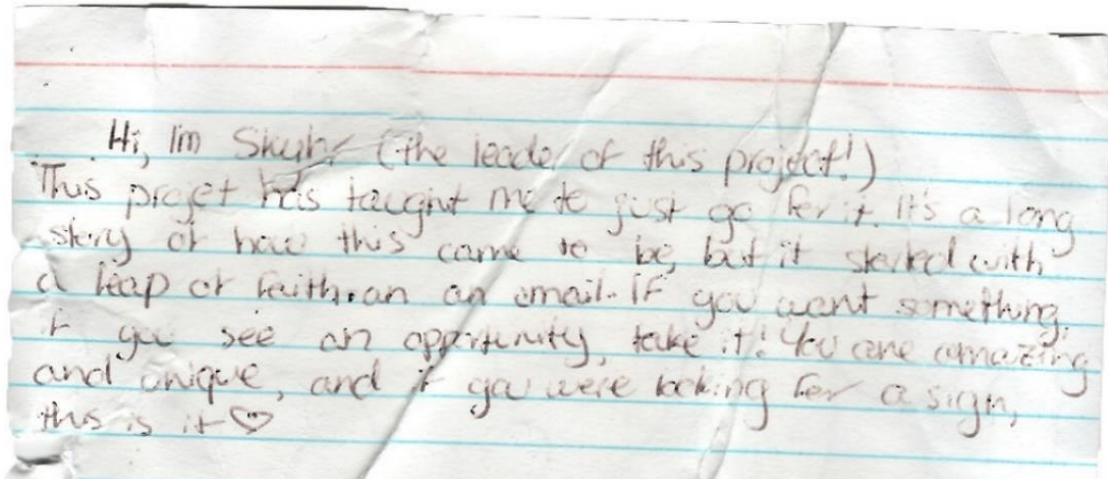 Hi, I'm Skyler (the leader of this project!)
This projet has taught me to just go for it. It's a long
story of how this came to be, but it started with
a leap of faith. an an email. If you want something,
if you see an opportunity, take it! You are amazing
and unique, and if you were looking for a sign,
this is it ♡